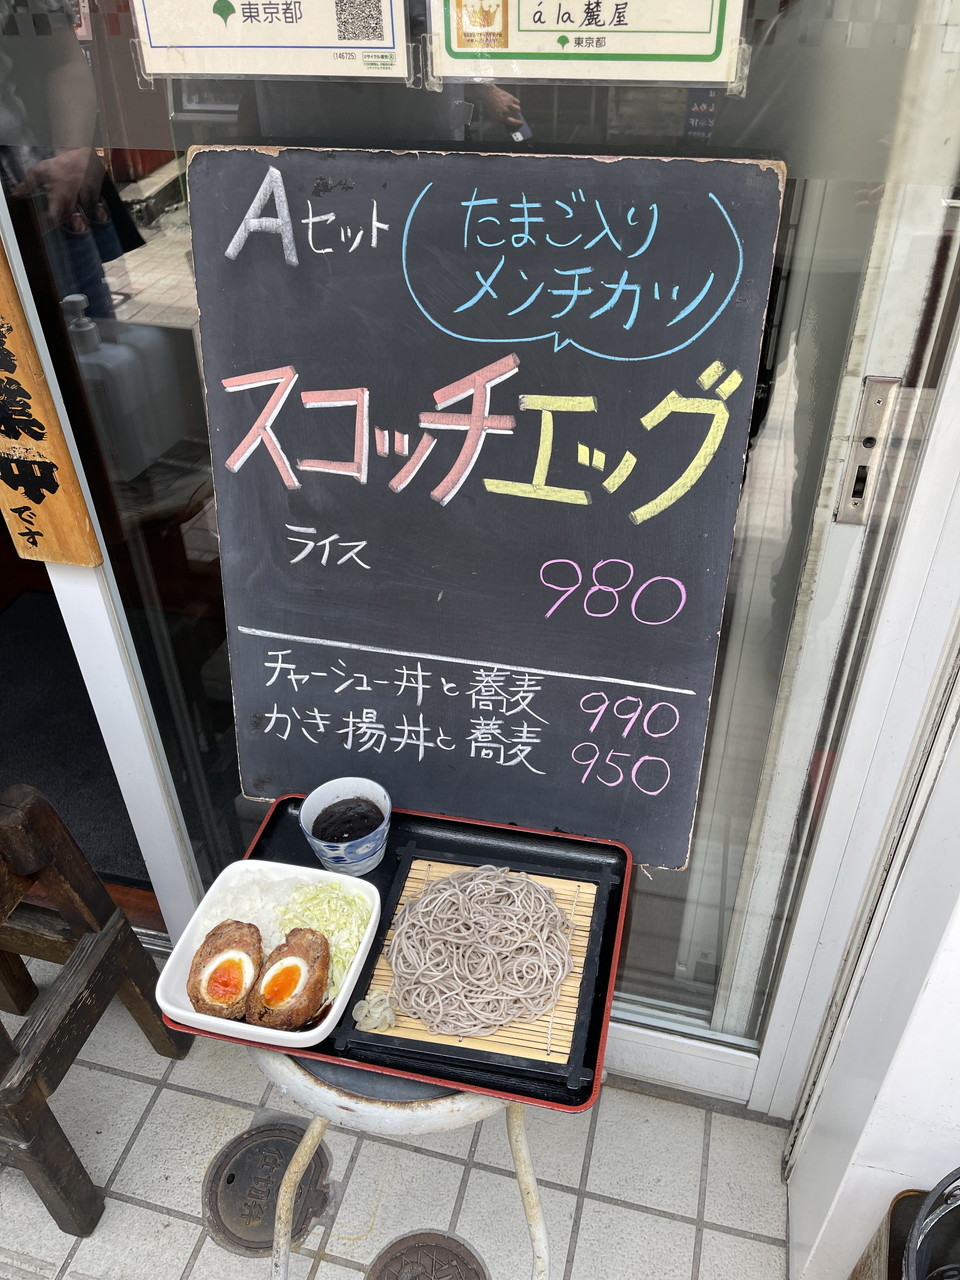 東京都
(146725)
á la 麓屋
東京都
Aセット
たまご入り
メンチカツ
スコッチエッグ
ライス
980
チャーシュー丼と蕎麦 990
かき揚丼と蕎麦 950
業中です
仕切弁